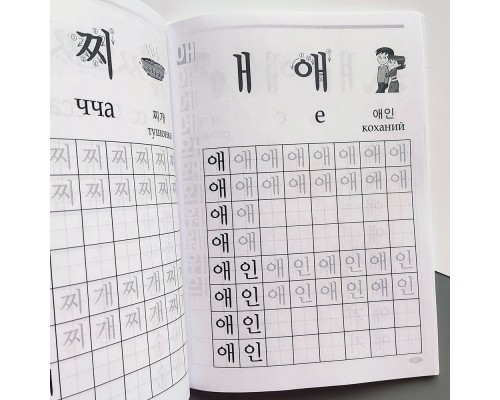 찌
чча
찌개
찌 찌 찌 찌
찌 찌 찌 찌
찌 개 찌 개
찌 개 찌 개
ㅐ 애
е
애인
коханий
애 애 애 애 애 애 애 애
애 애 애 애 애 애 애 애
애 애
애 애
애 인 애 인 애 인 애 인
애 인 애 인 애 인 애 인
애 인
애 인